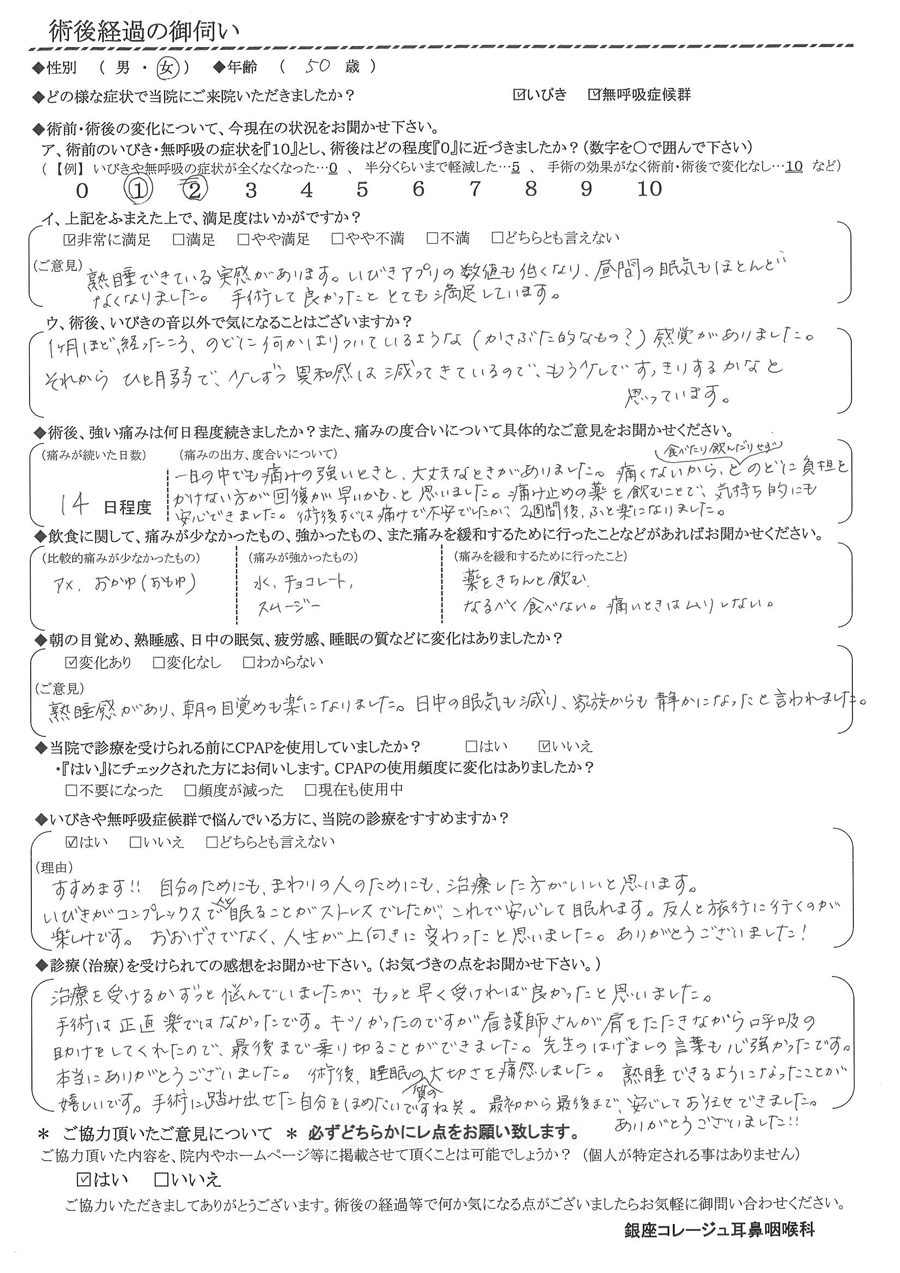 術後経過の御伺い
◆性別 ( 男 ・ 女 ) ◆年齢 ( 50 歳 )
◆どの様な症状で当院にご来院いただきましたか? ☑いびき ☑無呼吸症候群
◆術前・術後の変化について、今現在の状況をお聞かせ下さい。
ア、術前のいびき・無呼吸の症状を『10』とし、術後はどの程度『0』に近づきましたか?(数字を○で囲んで下さい)
(【例】 いびきや無呼吸の症状が全くなくなった…0 、 半分くらいまで軽減した…5 、 手術の効果がなく術前・術後で変化なし…10 など)
0 1 2 3 4 5 6 7 8 9 10
イ、上記をふまえた上で、満足度はいかがですか?
☑非常に満足 □満足 □やや満足 □やや不満 □不満 □どちらとも言えない
(ご意見) 熟睡できている実感があります。いびきアプリの数値も低くなり、昼間の眠気もほとんど
なくなりました。 手術して良かったと とても満足しています。
ウ、術後、いびきの音以外で気になることはございますか?
1ヶ月ほど経ったころ、のどに何かはりついているような(かさぶた的なもの?)感覚がありました。
それから ひと月弱で、少しずつ異和感は減ってきているので、もう少しですっきりするかなと
思っています。
◆術後、強い痛みは何日程度続きましたか?また、痛みの度合いについて具体的なご意見をお聞かせください。
(痛みが続いた日数) (痛みの出方、度合いについて) (食べたり飲んだりせず)
一日の中でも痛みの強いときと、大丈夫なときがありました。痛くないから、と のどに負担を
14 日程度 かけない方が回復が早いかも、と思いました。痛け止めの薬を飲むことで、気持ち的にも
安心できました。術後すぐは痛けで不安でしたが、2週間後、ふと楽になりました。
◆飲食に関して、痛みが少なかったもの、強かったもの、また痛みを緩和するために行ったことなどがあればお聞かせください。
(比較的痛みが少なかったもの) (痛みが強かったもの) (痛みを緩和するために行ったこと)
アメ、おかゆ(おもゆ) 水、チョコレート、 薬をきちんと飲む。
スムージー なるべく食べない。痛いときはムリしない。
◆朝の目覚め、熟睡感、日中の眠気、疲労感、睡眠の質などに変化はありましたか?
☑変化あり □変化なし □わからない
(ご意見)
熟睡感があり、朝の目覚めも楽になりました。日中の眠気も減り、家族からも静かになったと言われました。
◆当院で診療を受けられる前にCPAPを使用していましたか? □はい ☑いいえ
・『はい』にチェックされた方にお伺いします。CPAPの使用頻度に変化はありましたか?
□不要になった □頻度が減った □現在も使用中
◆いびきや無呼吸症候群で悩んでいる方に、当院の診療をすすめますか?
☑はい □いいえ □どちらとも言えない
(理由)
すすめます!! 自分のためにも、まわりの人のためにも、治療した方がいいと思います。
いびきがコンプレックスで眠ることがストレスでしたが、これで安心して眠れます。友人と旅行に行くのが
楽しみです。 おおげさでなく、人生が上向きに変わったと思いました。ありがとうございました!
◆診療(治療)を受けられての感想をお聞かせ下さい。(お気づきの点をお聞かせ下さい。)
治療を受けるかずっと悩んでいましたが、もっと早く受ければ良かったと思いました。
手術は正直楽ではなかったです。キツかったのですが看護師さんが肩をたたきながら呼吸の
助けをしてくれたので、最後まで乗り切ることができました。先生のはげましの言葉も心強かったです。
本当にありがとうございました。 術後、睡眠の大切さを痛感しました。 熟睡できるようになったことが
嬉しいです。手術に踏み出せた自分をほめたいですね笑。最初から最後まで、安心してお任せできました。
ありがとうございました!!
* ご協力頂いたご意見について * 必ずどちらかにレ点をお願い致します。
ご協力頂いた内容を、院内やホームページ等に掲載させて頂くことは可能でしょうか? (個人が特定される事はありません)
☑はい □いいえ
ご協力いただきましてありがとうございます。術後の経過等で何か気になる点がございましたらお気軽に御問い合わせください。
銀座コレージュ耳鼻咽喉科